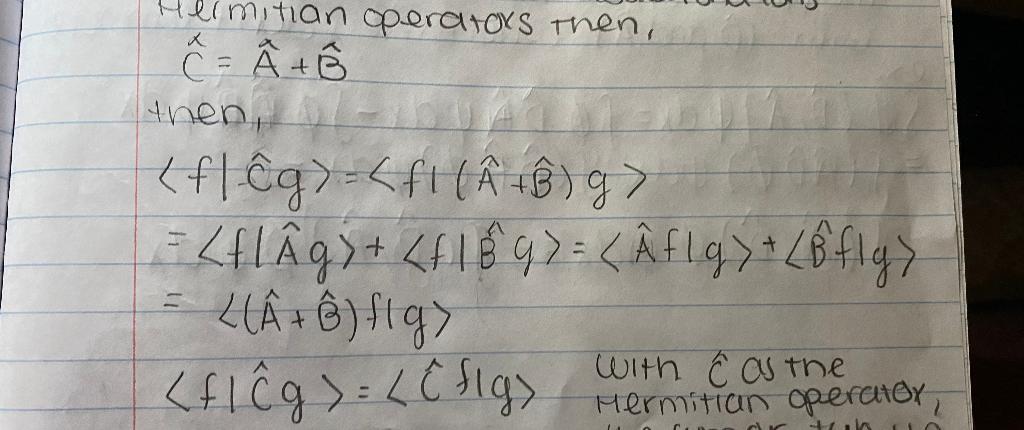 Hermitian operators then,
Ĉ = Â + B̂
then,
<f|Ĉg> = <f|(Â+B̂)g>
= <f|Âg> + <f|B̂g> = <Âf|g> + <B̂f|g>
= <(Â+B̂)f|g>
<f|Ĉg> = <Ĉf|g> with Ĉ as the
Hermitian operator,